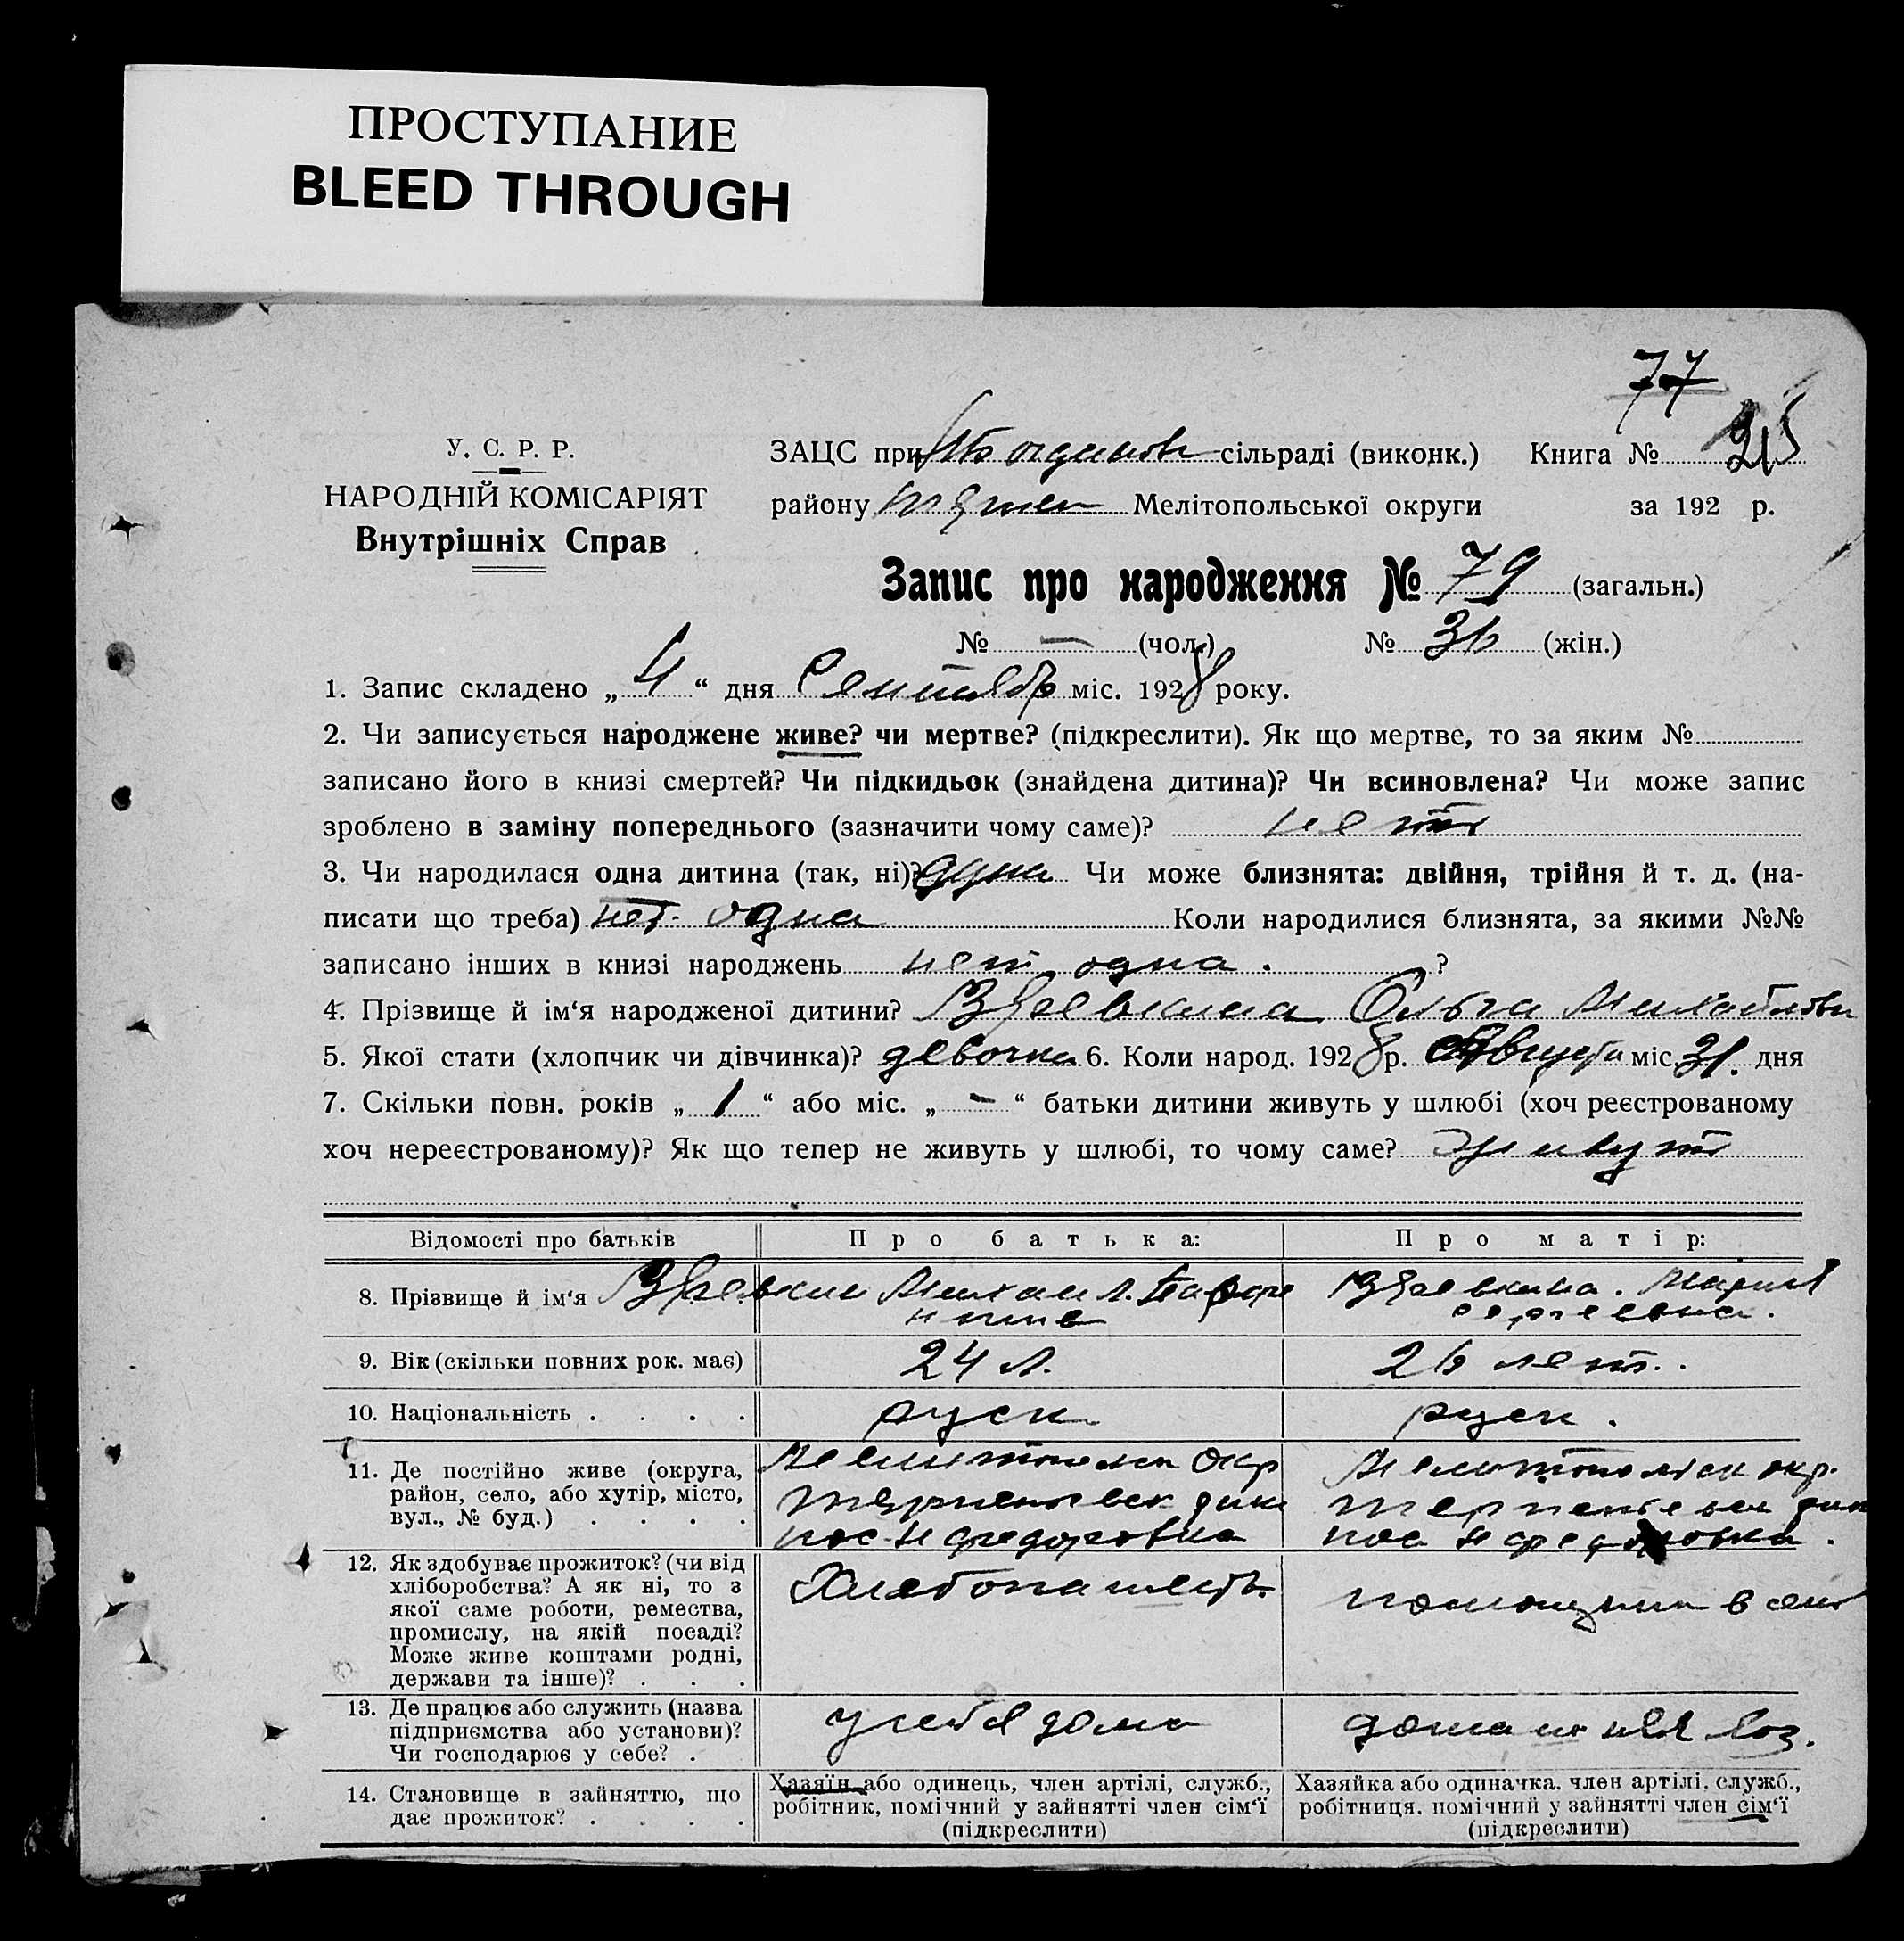 ПРОСТУПАНИЕ
BLEED THROUGH
77
У. С. Р. Р.
НАРОДНІЙ КОМІСАРІЯТ
Внутрішніх Справ
ЗАЦС при сільраді (виконк.) Книга № 25
району Мелітопольської округи за 192 р.
Запис про народження № 79 (загальн.)
№ — (чол.) № 36 (жін.)
1. Запис складено „ 4 “ дня Сентябр міс. 1928 року.
2. Чи записується народжене живе? чи мертве? (підкреслити). Як що мертве, то за яким №
записано його в книзі смертей? Чи підкидьок (знайдена дитина)? Чи всиновлена? Чи може запис
зроблено в заміну попереднього (зазначити чому саме)? нет
3. Чи народилася одна дитина (так, ні)? одна Чи може близнята: двійня, трійня й т. д. (на-
писати що треба) нет одна Коли народилися близнята, за якими №№
записано інших в книзі народжень нет одна. ?
4. Прізвище й ім‘я народженої дитини? Ольга Михайловн
5. Якої стати (хлопчик чи дівчинка)? девочка 6. Коли народ. 1928 р. Августа міс. 31. дня
7. Скільки повн. років „ 1 “ або міс. „ - “ батьки дитини живуть у шлюбі (хоч реєстрованому
хоч нереєстрованому)? Як що тепер не живуть у шлюбі, то чому саме? живут
Відомості про батьків Про батька: Про матір:
8. Прізвище й ім‘я Михаил Мария
Сергеевна.
9. Вік (скільки повних рок. має) 24 л. 26 лет.
10. Національність . . . . руск руск.
11. Де постійно живе (округа, Мелитополь Окр Мелитопольск окр.
район, село, або хутір, місто,
вул., № буд.) . . . . пос. Нефедоровка пос Нефедоровка.
12. Як здобуває прожиток? (чи від
хліборобства? А як ні, то з Хлебопашеств.
якої саме роботи, ремества,
промислу, на якій посаді?
Може живе коштами родні,
держави та інше)? . . .
13. Де працює або служить (назва
підприємства або установи)? у себя дома дома
Чи господарює у себе? .
14. Становище в зайняттю, що
дає прожиток? . . . .
Хазяїн або одинець, член артілі, служб.,
робітник, помічний у зайнятті член сім‘ї
(підкреслити)
Хазяйка або одиначка, член артілі, служб.,
робітниця, помічний у зайнятті член сім‘ї
(підкреслити)